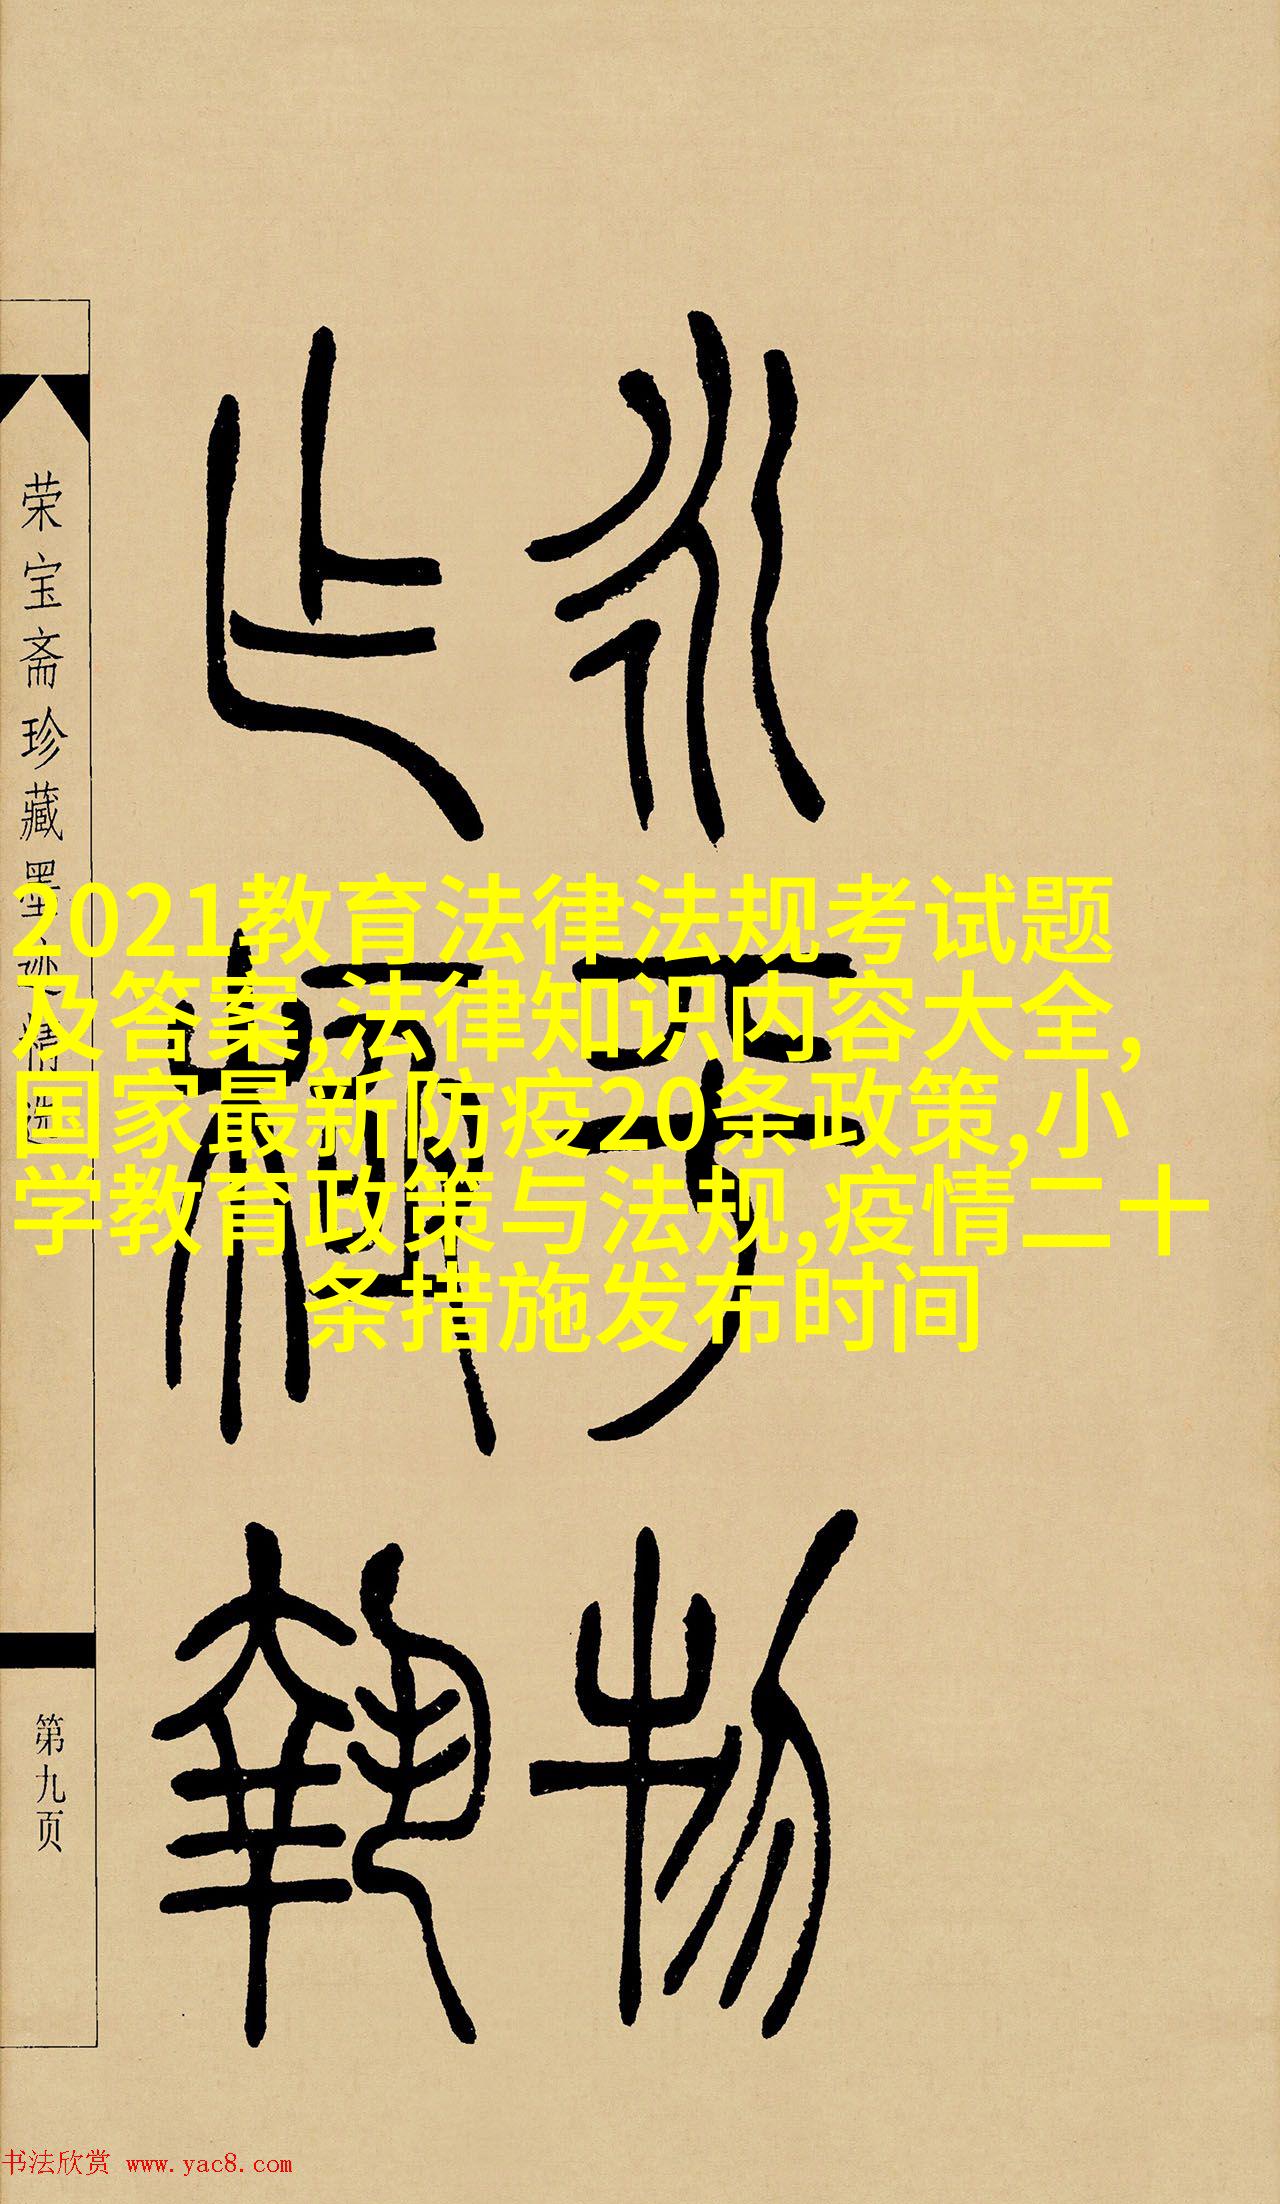 2021教育法律法规考试题
及答案,法律知识内容大全,
国家最新防疫20条政策,小
学教育政策与法规,疫情二十
条措施发布时间
物
荣宝斋珍藏墨迹精选
第九页
书法欣赏 www.yac8.com